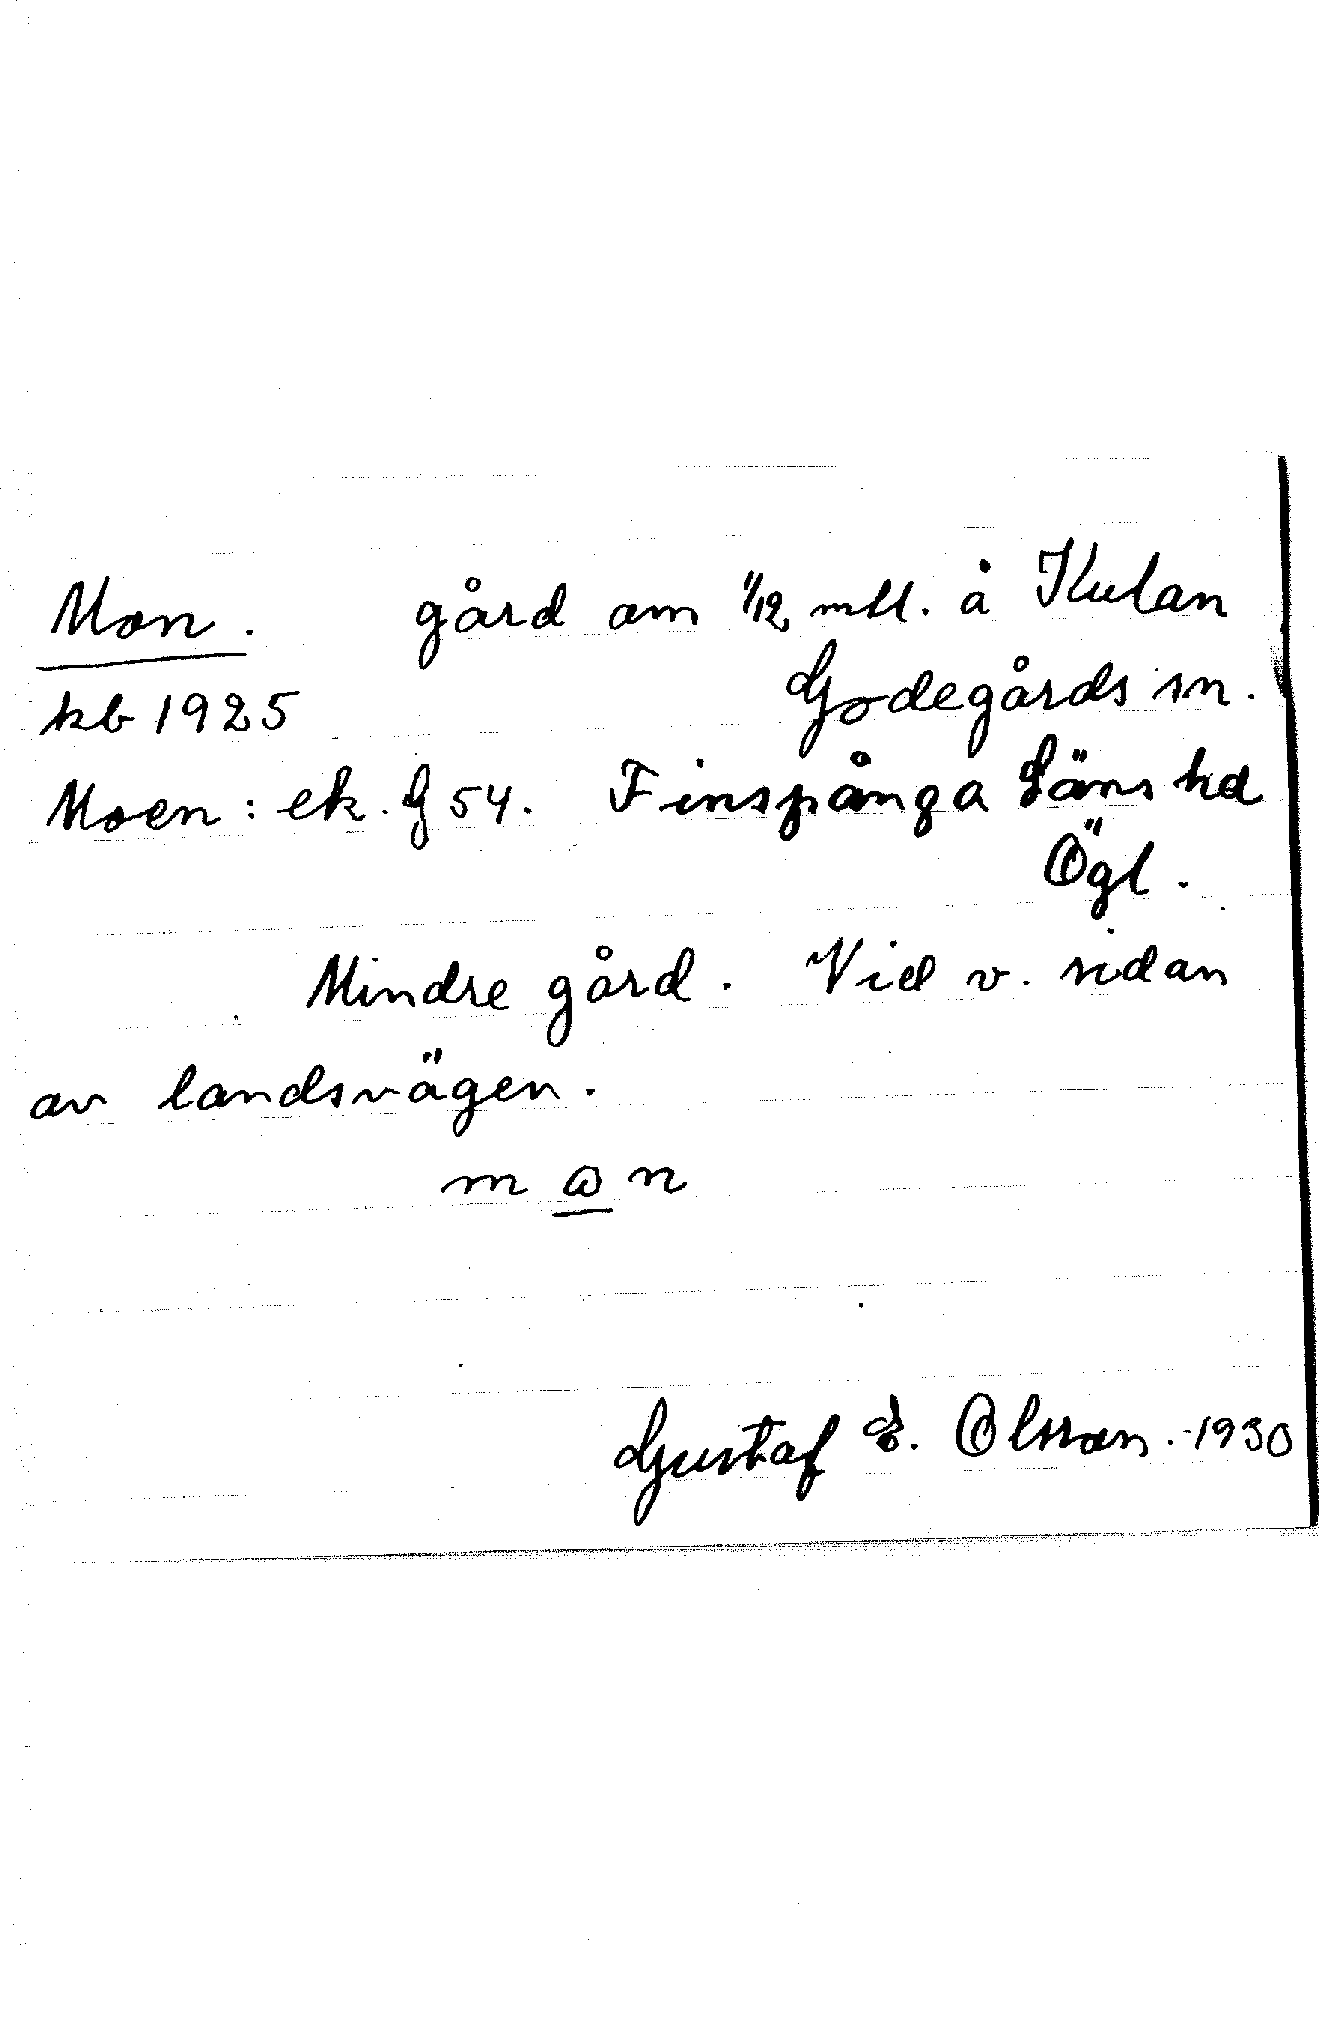 Mon. gård om 1/12 mtl. å Kulan
kb 1925 Godegårds sn.
Moen: ek. G 54. Finspånga Läns hd
Ögl.
Mindre gård. Vid v. sidan
av landsvägen.
m ω n
Gustaf E. Olsson. -1930